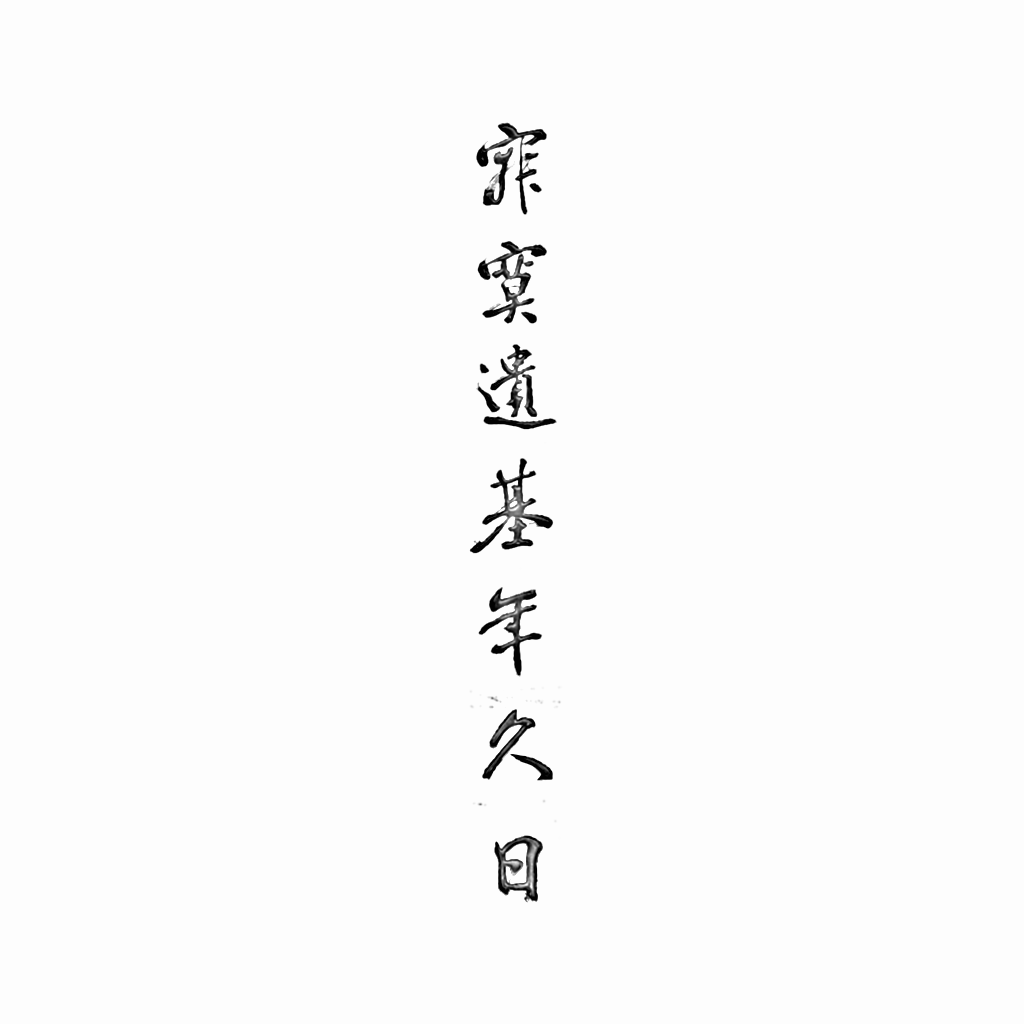 寂寞遺基年久日